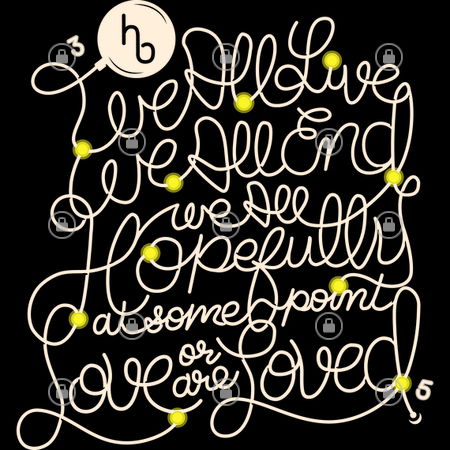 3
hb
We All Live
We All End
we All
Hopefully
at some point
Love or are Loved
5